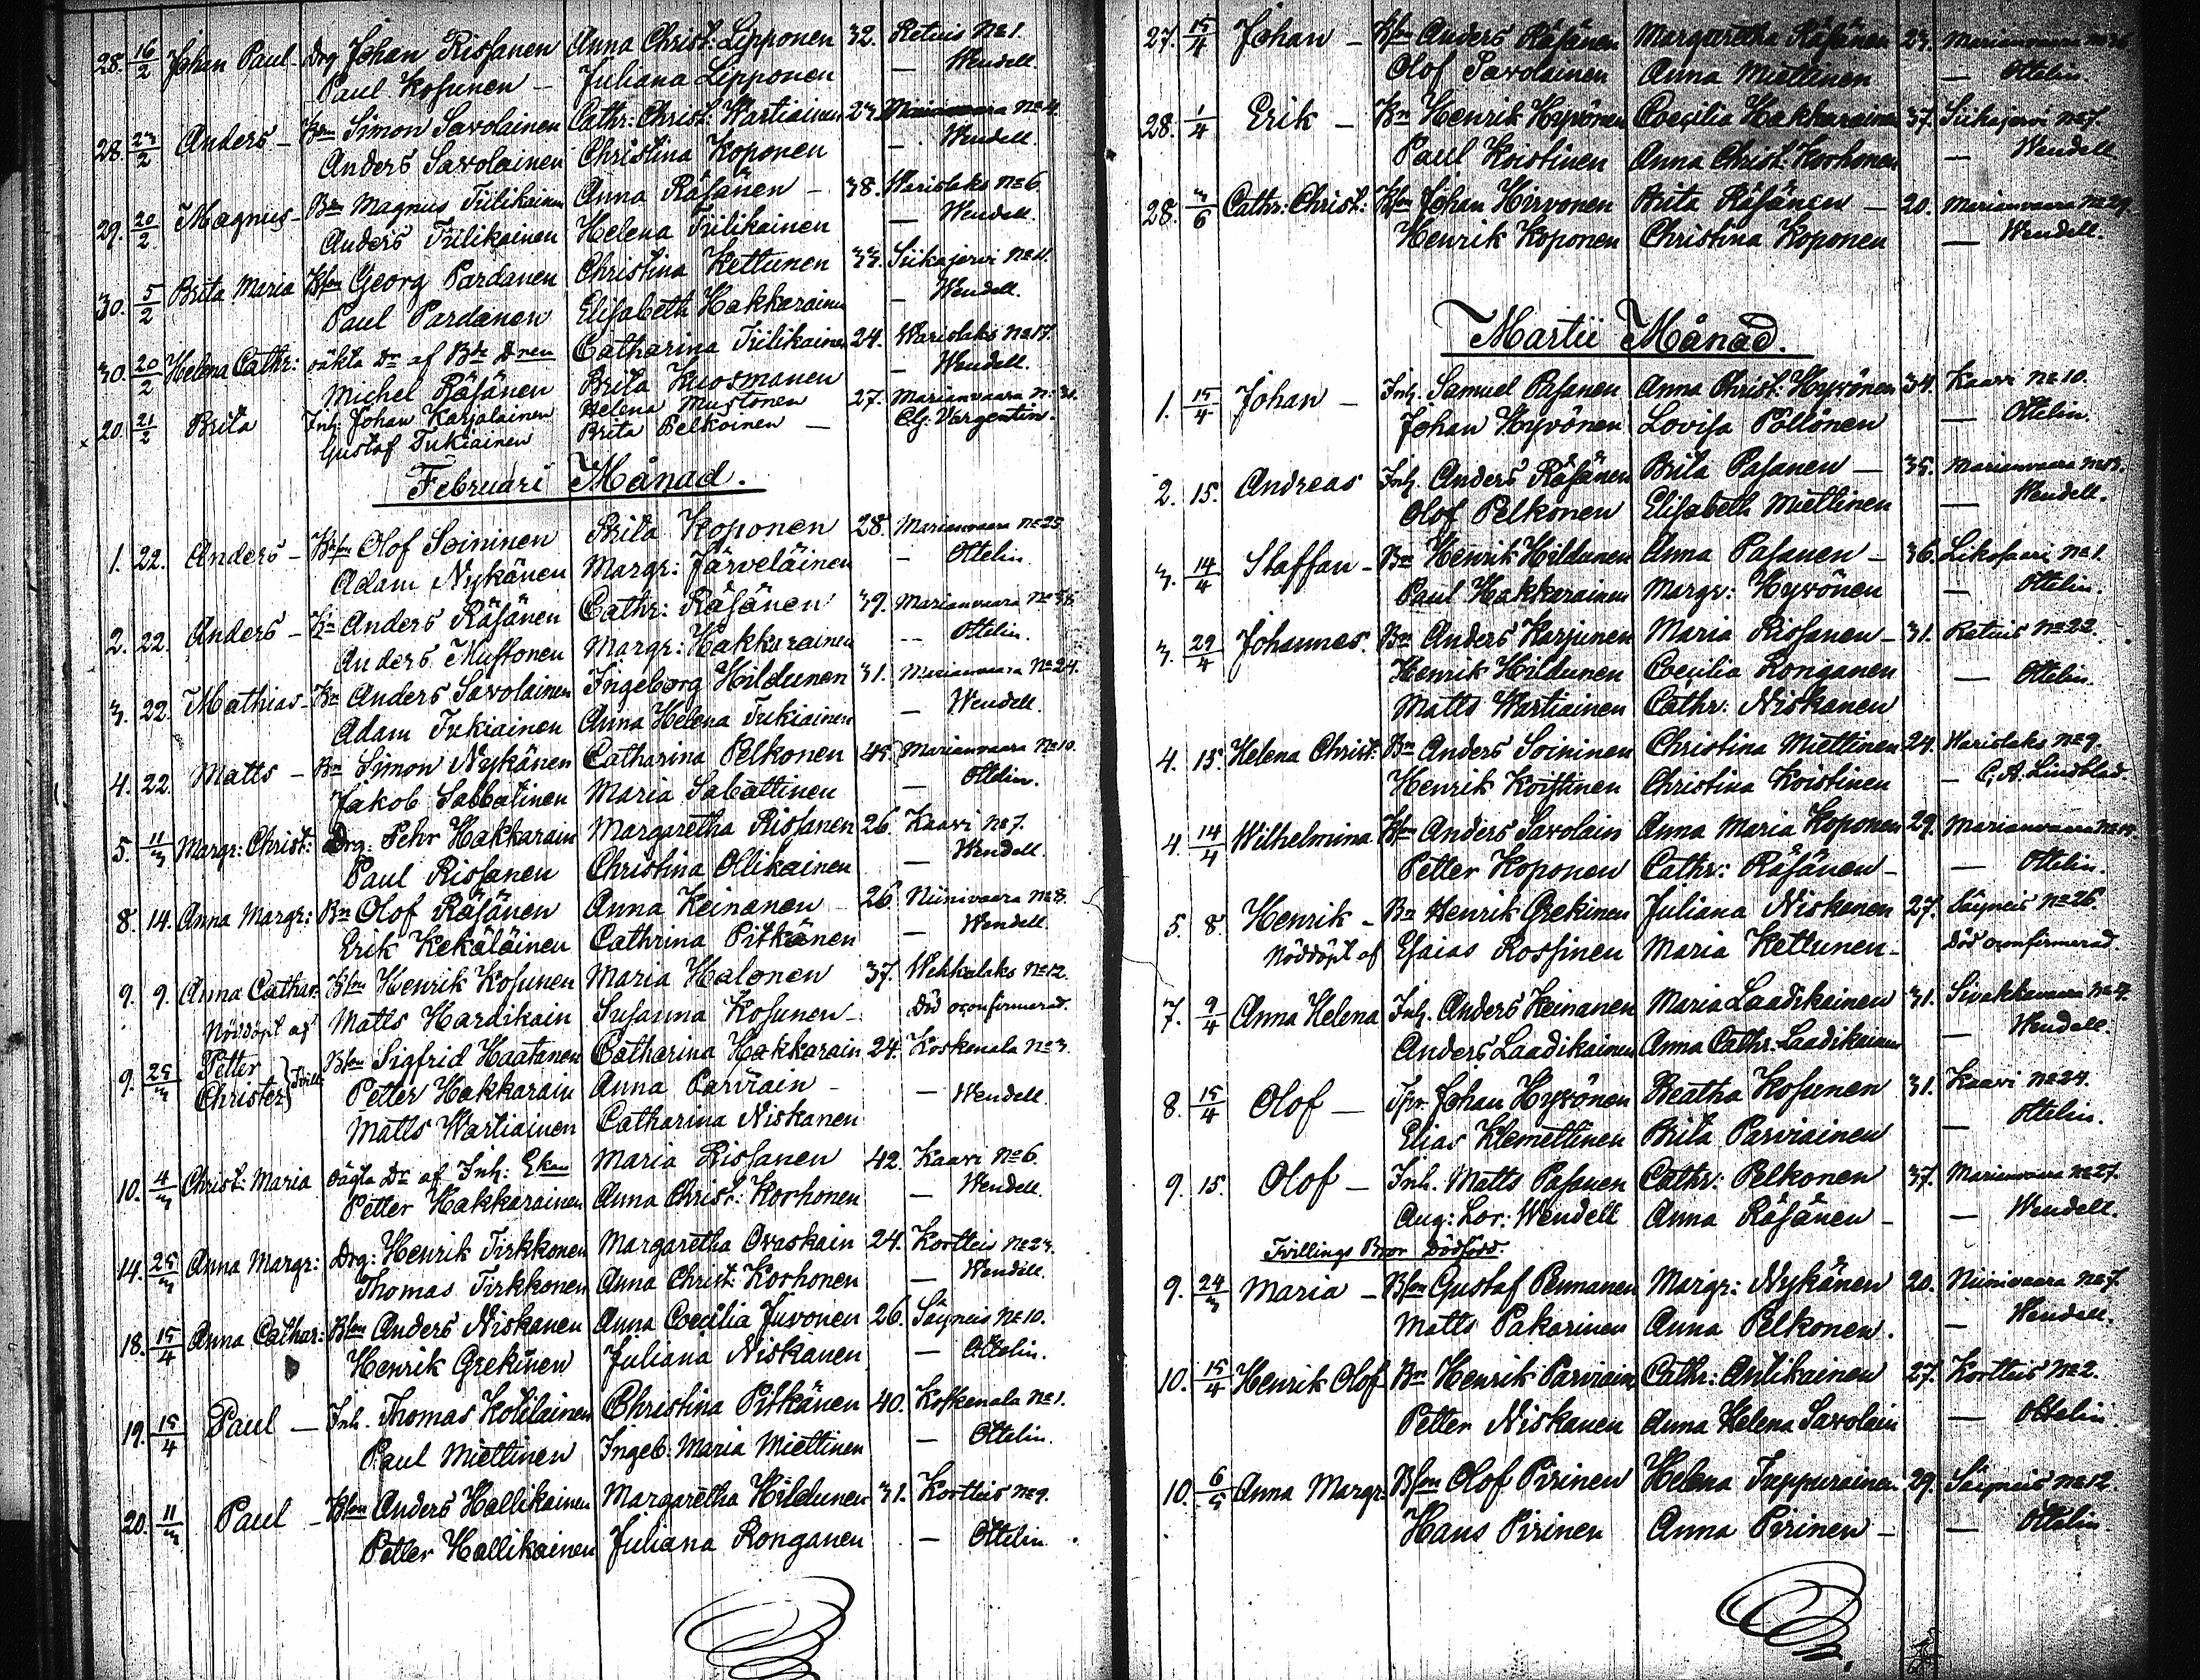 28. 16/2 Johan Paul - Drg Johan Rissanen Anna Christ: Lipponen 32. Retuis No 1.
Paul Kosunen - Juliana Lipponen — Wendell.
28. 23/2 Anders - Bm Simon Savolainen Cathr: Christ: Wartiainen 23. No 4.
Anders Savolainen Christina Koponen — Wendell.
29. 20/2 Magnus - Bm Magnus Tiilikainen Anna Räsänen - 38. Warislaks No 6.
Anders Tiilikainen Helena Tiilikainen — Wendell.
30. 5/2 Brita Maria Bson Georg Pardanen Christina Kettunen 33. Siikajervi No 11.
Paul Pardanen Elisabeth Hakkarainen — Wendell.
30. 20/2 Helena Cathr: oäkta Dr af Bde Dren Catharina Tiilikainen 24. Warislaks No 17.
Michel Räsänen Brita Kuosmanen — Wendell.
20. 21/2 Brita Inh. Johan Karjalainen Helena Mustonen 27. Marianvaara No 31.
Gustaf Tukiainen Brita Pelkoinen — Clj. Vargentin.
Februari Månad.
1. 22. Anders - Bson Olof Soininen Brita Koponen 28. Marianvaara No 25
Adam Nykänen Margr: Järveläinen - Ottelin.
2. 22. Anders - Bn Anders Räsänen Cathr: Räsänen 39. Marianvaara No 35
Anders Mustonen Margr: Hakkarainen -- Ottelin.
3. 22. Mathias - Bn Anders Savolainen Ingeborg Hildunen 31. Marianvaara No 24.
Adam Tukiainen Anna Helena Tukiainen — Wendell.
4. 22. Matts - Bn Simon Nykänen Catharina Pelkonen 45. Marianvaara No 10.
Jakob Sabbatinen Maria Sabattinen — Ottelin.
5. 11/3 Margr: Christ: Drg: Pehr Hakkarain Margaretha Rissanen 26. Kaavi No 7.
Paul Rissanen Christina Ollikainen — Wendell.
8. 14. Anna Margr: Bn Olof Räsänen Anna Keinanen - 26. Niinivaara No 8.
Erik Kekäläinen Cathrina Pitkänen — Wendell.
9. 9. Anna Cathar: Bson Henrik Kosunen Maria Halonen 37. Wehkalaks No 12.
Nöddöpt af Matts Hardikain Susanna Kosunen - Död oconfirmerad.
9. 25/3 Petter Bson Sigfrid Haatanen Catharina Hakkarain 24. Koskenala No 3.
Christer } Tvill. Petter Hakkarain Anna Parviain - — Wendell.
Matts Wartiainen Catharina Niskanen
10. 4/3 Christ: Maria oägta Dr af Inh: Ekan Maria Rissanen 42. Kaavi No 6.
Petter Hakkarainen Anna Christ: Korhonen — Wendell.
14. 25/3 Anna Margr: Drg: Henrik Tirkkonen Margaretha Ovaskain 24. Kortteis No 23.
Thomas Tirkkonen Anna Christ: Korhonen — Wendell.
18. 15/4 Anna Cathar: Bson Anders Niskanen Anna Coecilia Juvonen 26. Säyneis No 10.
Henrik Grekinen Juliana Niskanen — Ottelin.
19. 15/4 Paul — Inh. Thomas Kolilainen Christina Pitkänen 40. Koskenala No 1.
Paul Miettinen Ingeb: Maria Miettinen — Ottelin.
20. 11/3 Paul - Bson Anders Hallikainen Margaretha Hildunen 31. Kortteis No 9.
Petter Hallikainen Juliana Ronganen — Ottelin.
27. 15/4 Johan - Bson Anders Räsänen Margaretha Räsänen 23. Marianvaara
Olof Savolainen Anna Miettinen — Ottelin.
28. 1/4 Erik - Bn Henrik Hyvönen Coecilia Hakkarainen 37. Siikajervi No 7.
Paul Koistinen Anna Christ. Korhonen — Wendell
28. 3/6 Cathr: Christ: Bson Johan Hirvonen Brita Räsänen - 20. Marianvaara No 29.
Henrik Koponen Christina Koponen — Wendell.
Martii Månad.
1. 15/4 Johan - Inh. Samuel Pasanen Anna Christ: Hyvönen 34. Kaavi No 10.
Johan Hyvönen Lovisa Pöllönen — Ottelin.
2. 15. Andreas Inh. Anders Räsänen Brita Pasanen - 35. Marianvaara
Olof Pelkonen Elisabeth Miettinen — Wendell.
3. 14/4 Staffan - Bn Henrik Hildunen Anna Pasanen - 36. Likosaari No 1.
Paul Hakkarainen Margr: Hyvönen — Ottelin.
3. 29/4 Johannes. Bn Anders Karjunen Maria Rissanen - 31. Retuis No 22.
Henrik Hildunen Coecilia Ronganen — Ottelin.
Matts Wartiainen Cathr: Niskanen
4. 15. Helena Christ: Bn Anders Soininen Christina Miettinen 24. Warislaks No 9.
Henrik Koistinen Christina Koistinen — C. A. Lindblad.
4. 14/4 Wilhelmina Bson Anders Savolain Anna Maria Koponen 29. Marianvaara
Petter Koponen Cathr: Räsänen - — Ottelin.
5. 8. Henrik - Bn Henrik Grekinen Juliana Niskanen 27. Säyneis No 26.
Nöddöpt af Esaias Rossinen Maria Kettunen - Död oconfirmerad.
7. 9/4 Anna Helena Inh. Anders Keinanen Maria Laadikainen 31. Sivakkavaara No 4.
Anders Laadikainen Anna Cathr: Laadikainen — Wendell.
8. 15/4 Olof — Tpr. Johan Hyvönen Beatha Kosunen 31. Kaavi No 24.
Elias Klemettinen Brita Parviainen — Ottelin.
9. 15. Olof - Inh. Matts Pasanen Cathr: Pelkonen 37. Marianvaara No 27.
Aug: Lor: Wendell Anna Räsänen - — Wendell.
Tvillings Bror Dödfödd.
9. 24/3 Maria - Bson Gustaf Pennanen Margr: Nykänen 20. Niinivaara No 7.
Matts Pakarinen Anna Pelkonen. — Wendell.
10. 15/4 Henrik Olof Bn Henrik Parviain Cathr: Antikainen 27. Kortteis No 2.
Petter Niskanen Anna Helena Savolain — Ottelin
10. 6/5 Anna Margr: Bson Olof Pirinen Helena Tuppurainen 29. Säyneis No 12.
Hans Pirinen Anna Pirinen - — Ottelin